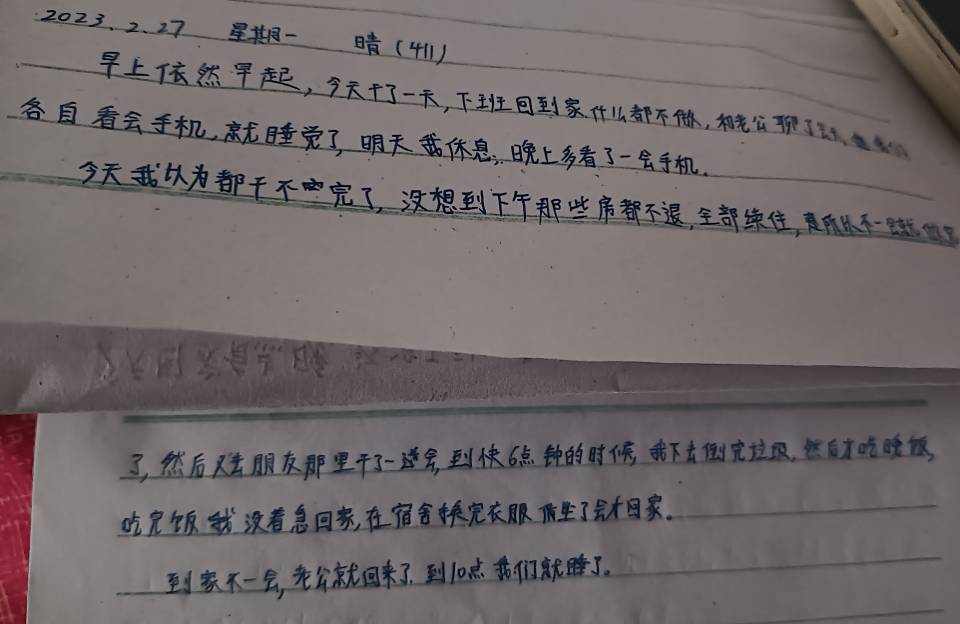 2023.2.27 星期一 晴（411）
早上依然早起，今天干了一天，下班回到家什么都不做，和老公聊了
各自看会手机，就睡觉了，明天我休息，晚上多看了一会手机。
今天我以为都干不完了，没想到下午那些房都不退，全部续住，所以不一会就
了，然后又去朋友那里干了一会，到快6点钟的时候，我下去倒完垃圾，然后才吃晚饭，
吃完饭我没着急回家，在宿舍换完衣服坐了会才回家。
到家不一会，老公就回来了，到10点我们就睡了。